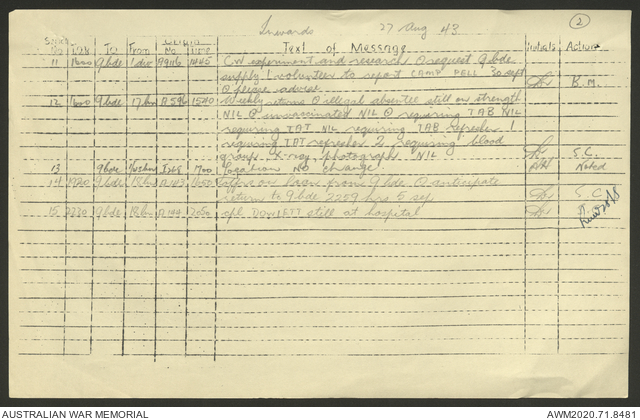 Inwards 27 Aug 43 2
Serial No TOR To From Origin No Time Text of Message Initials Action
11 9 bde 1 div A9116 1445 CW experiment and research O request 9 bde
supply 1 volunteer to report CAMP PELL 30 sept
O please advise B.M.
12 1600 9 bde 17 bn A596 1540 Weekly returns O illegal absentee still on strength
NIL O unvaccinated NIL O requiring TAB NIL
requiring TAT NIL requiring TAB refresher 1
requiring TAT refresher 2 requiring blood
group, X-ray, photographs NIL S.C.
13 9 bde 1700 location NO change Noted
14 1920 9 bde 18 bn 1650 on loan from 9 bde O anticipate
return to 9 bde 2359 hrs 5 sep S.C.
15 2220 9 bde 18 bn 2050 cpl DOWLETT still at hospital
AUSTRALIAN WAR MEMORIAL AWM2020.71.8481